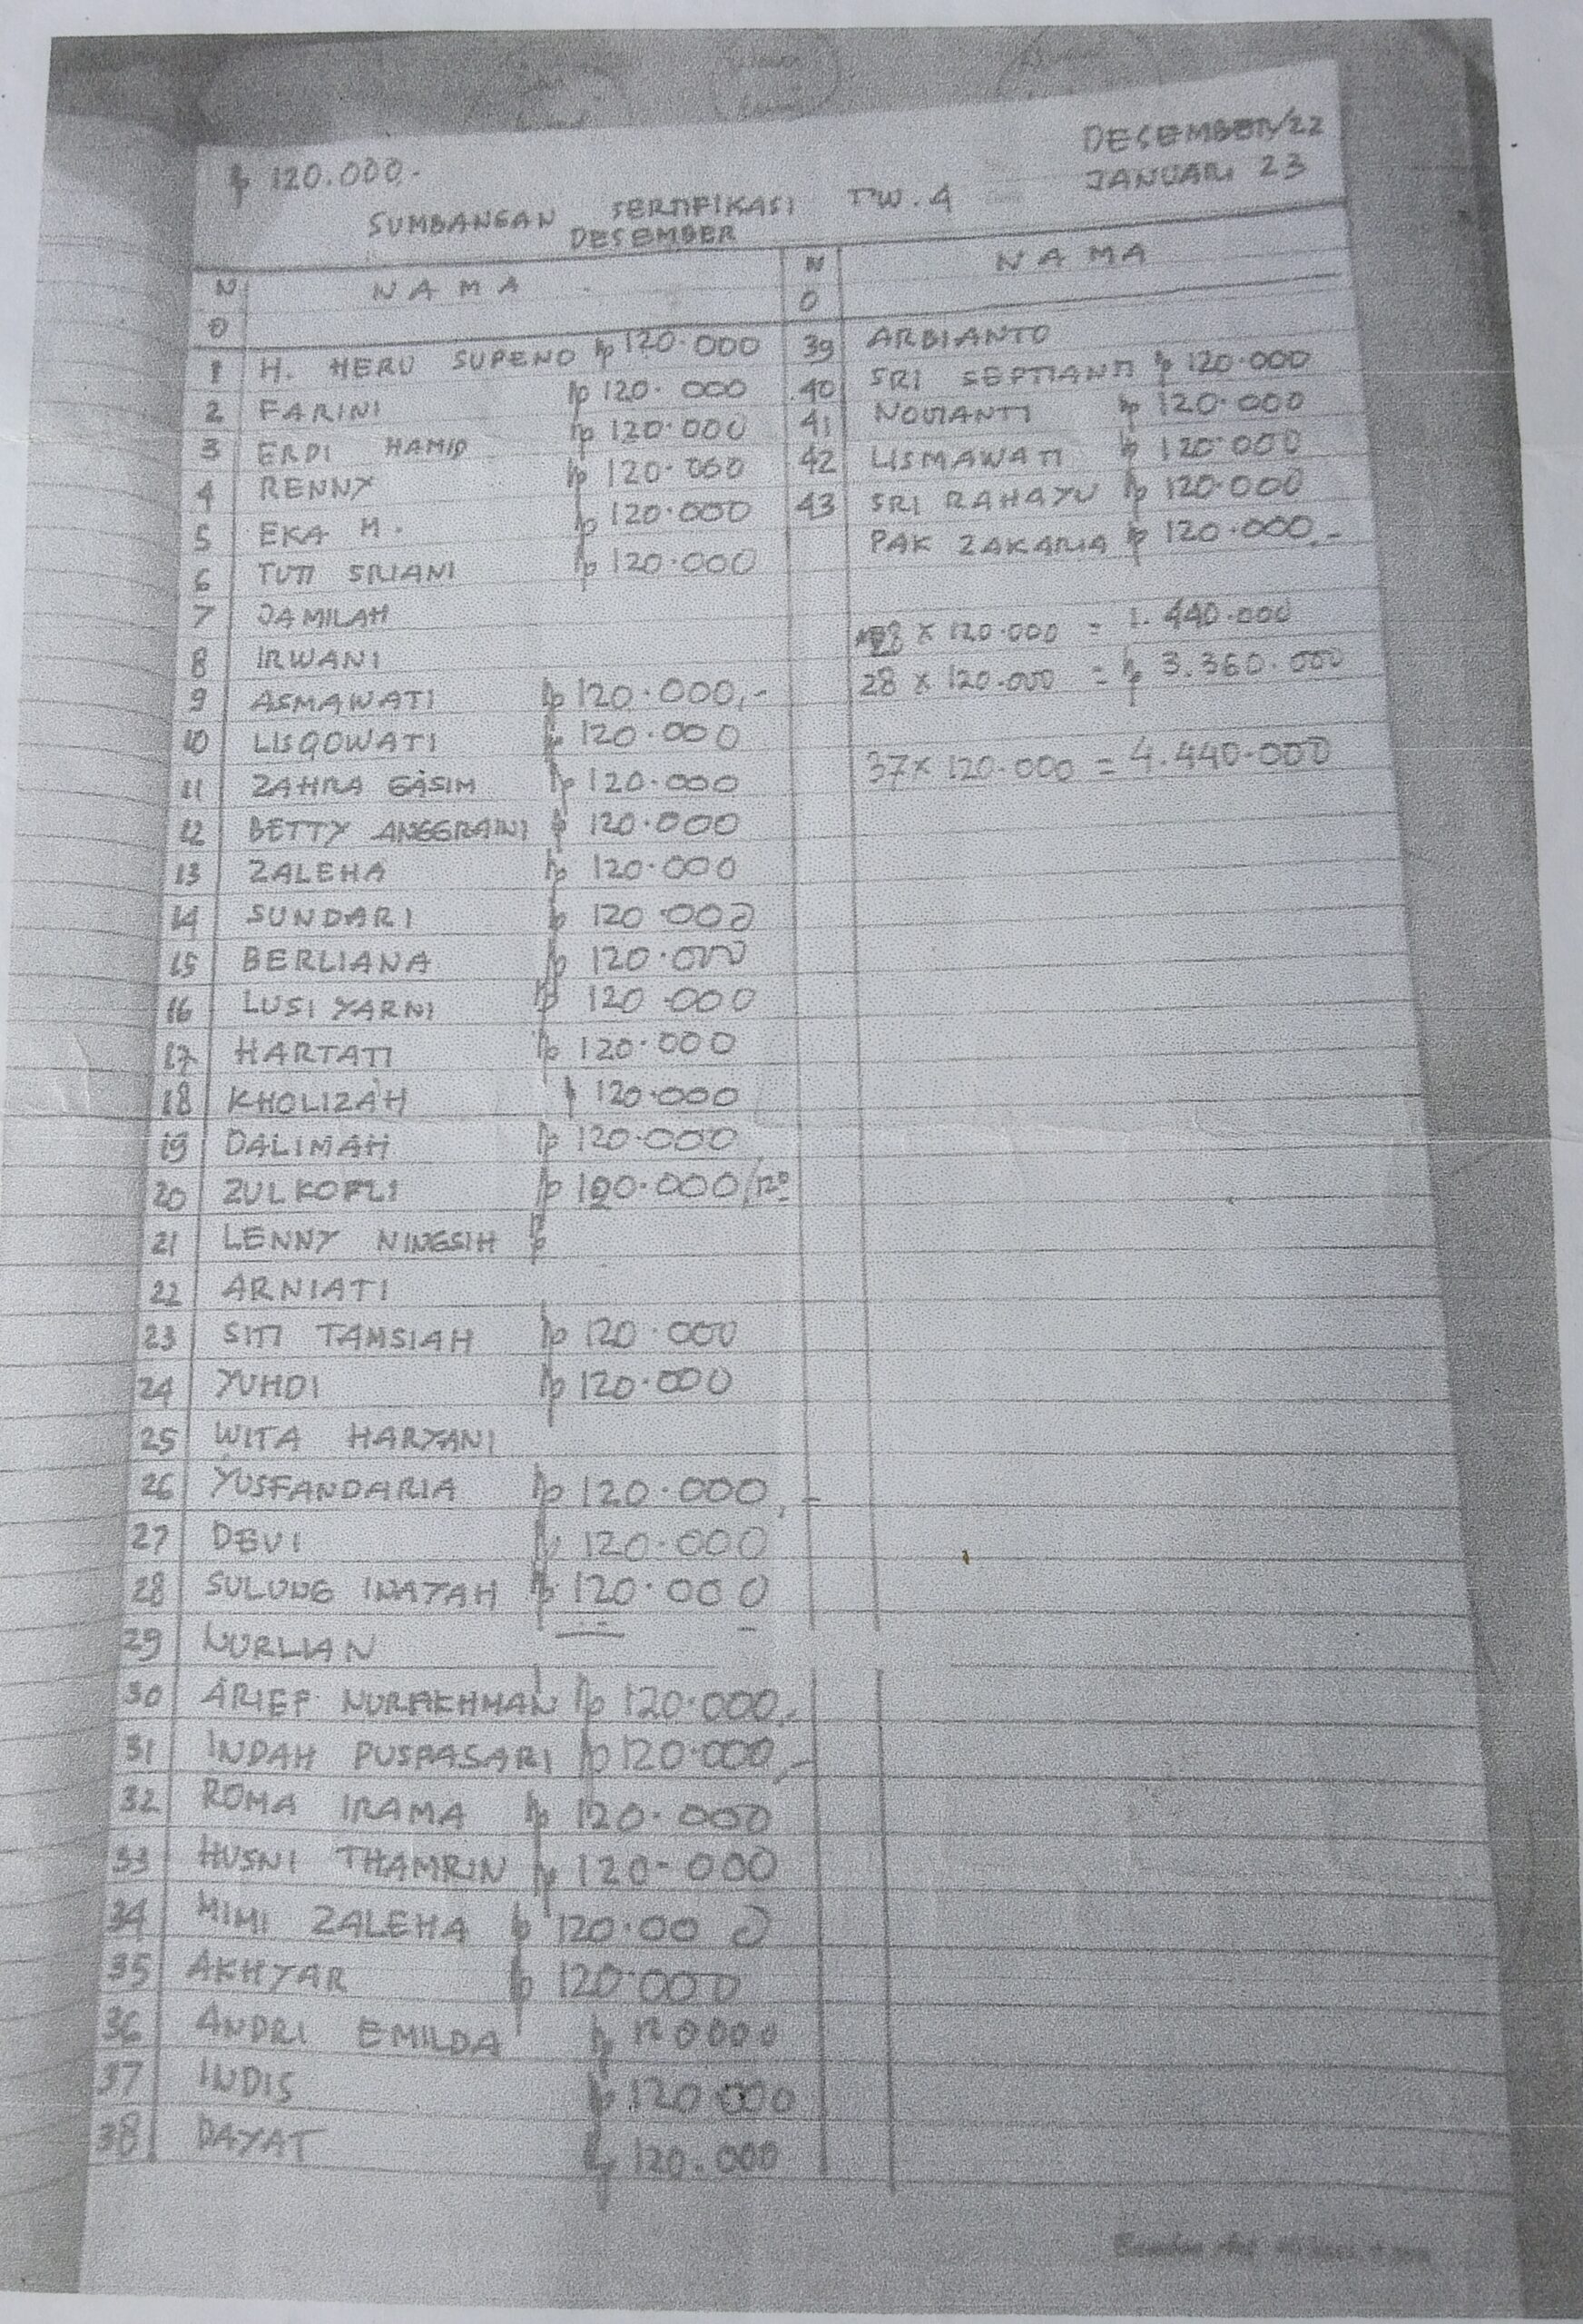 Rp 120.000,-
DESEMBER/22
JANUARI 23
SUMBANGAN SERTIFIKASI TW. 4
DESEMBER
NO NAMA
1 H. HERU SUPENO Rp 120.000
2 FARINI Rp 120.000
3 ERDI HAMID Rp 120.000
4 RENNY Rp 120.000
5 EKA M. Rp 120.000
6 TUTI SRIANI Rp 120.000
7 JAMILAH
8 IRWANI
9 ASMAWATI Rp 120.000,-
10 LISQOWATI Rp 120.000
11 ZAHRA GASIM Rp 120.000
12 BETTY ANGGRAINI Rp 120.000
13 ZALEHA Rp 120.000
14 SUNDARI Rp 120.000
15 BERLIANA Rp 120.000
16 LUSI YARNI Rp 120.000
17 HARTATI Rp 120.000
18 KHOLIZAH Rp 120.000
19 DALIMAH Rp 120.000
20 ZULKOFLI Rp 120.000/120
21 LENNY NINGSIH Rp
22 ARNIATI
23 SITI TAMSIAH Rp 120.000
24 YUHDI Rp 120.000
25 WITA HARYANI
26 YUSFANDARIA Rp 120.000,-
27 DEVI Rp 120.000
28 SULUNG INAYAH Rp 120.000
29 NURLIAN
30 ARIEF NURAKHMAN Rp 120.000,-
31 INDAH PUSPASARI Rp 120.000,-
32 ROMA IRAMA Rp 120.000
33 HUSNI THAMRIN Rp 120.000
34 MIMI ZALEHA Rp 120.000
35 AKHYAR Rp 120.000
36 ANDRI EMILDA Rp 120000
37 INDIS Rp 120.000
38 DAYAT Rp 120.000
NO NAMA
39 ARBIANTO
40 SRI SEPTIANTI Rp 120.000
41 NOVIANTI Rp 120.000
42 LISMAWATI Rp 120.000
43 SRI RAHAYU Rp 120.000
PAK ZAKARIA Rp 120.000,-
x 120.000 = 1.440.000
28 x 120.000 = Rp 3.360.000
37 x 120.000 = 4.440.000